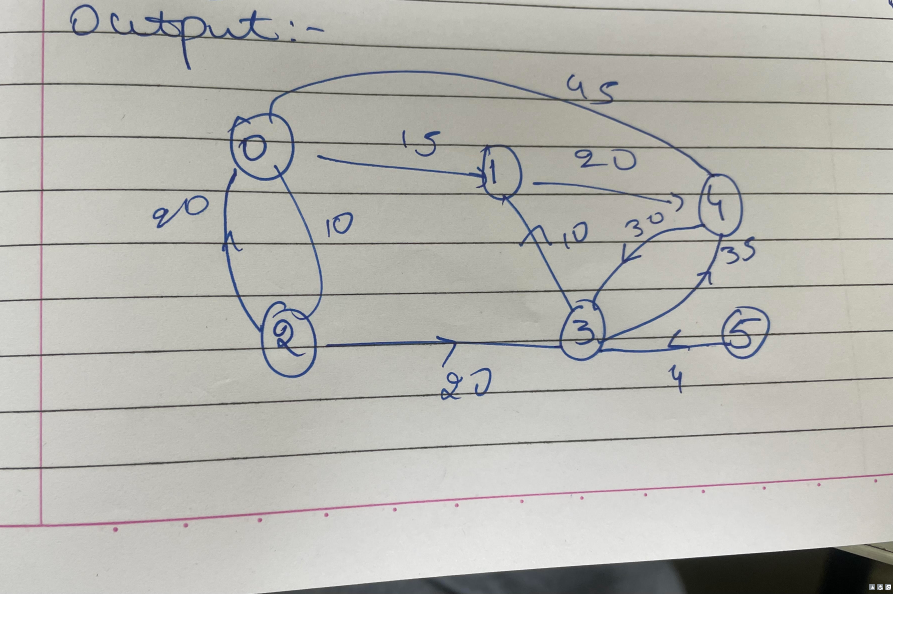 Output:-
45
0
15
1
20
4
20
10
10
30
35
2
3
5
20
4